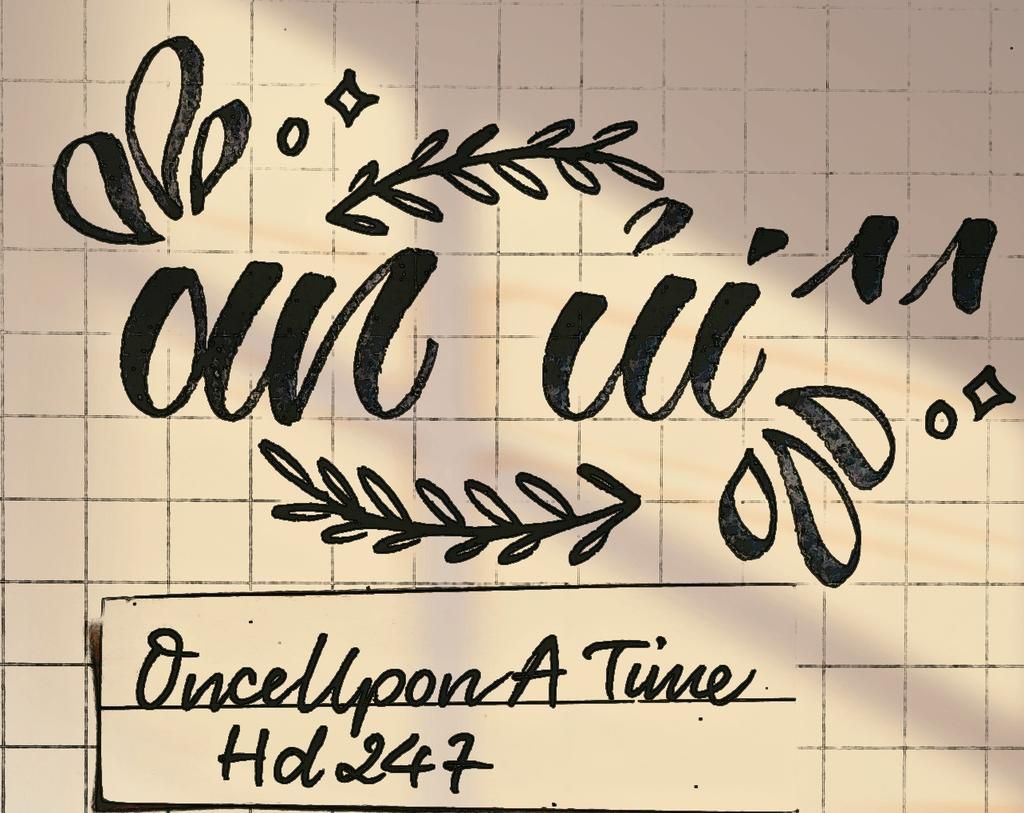 an ủi
OnceUpon A Time
Hd 247